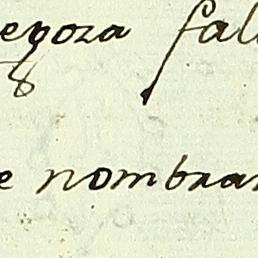 egoza fal
8
e nombrar